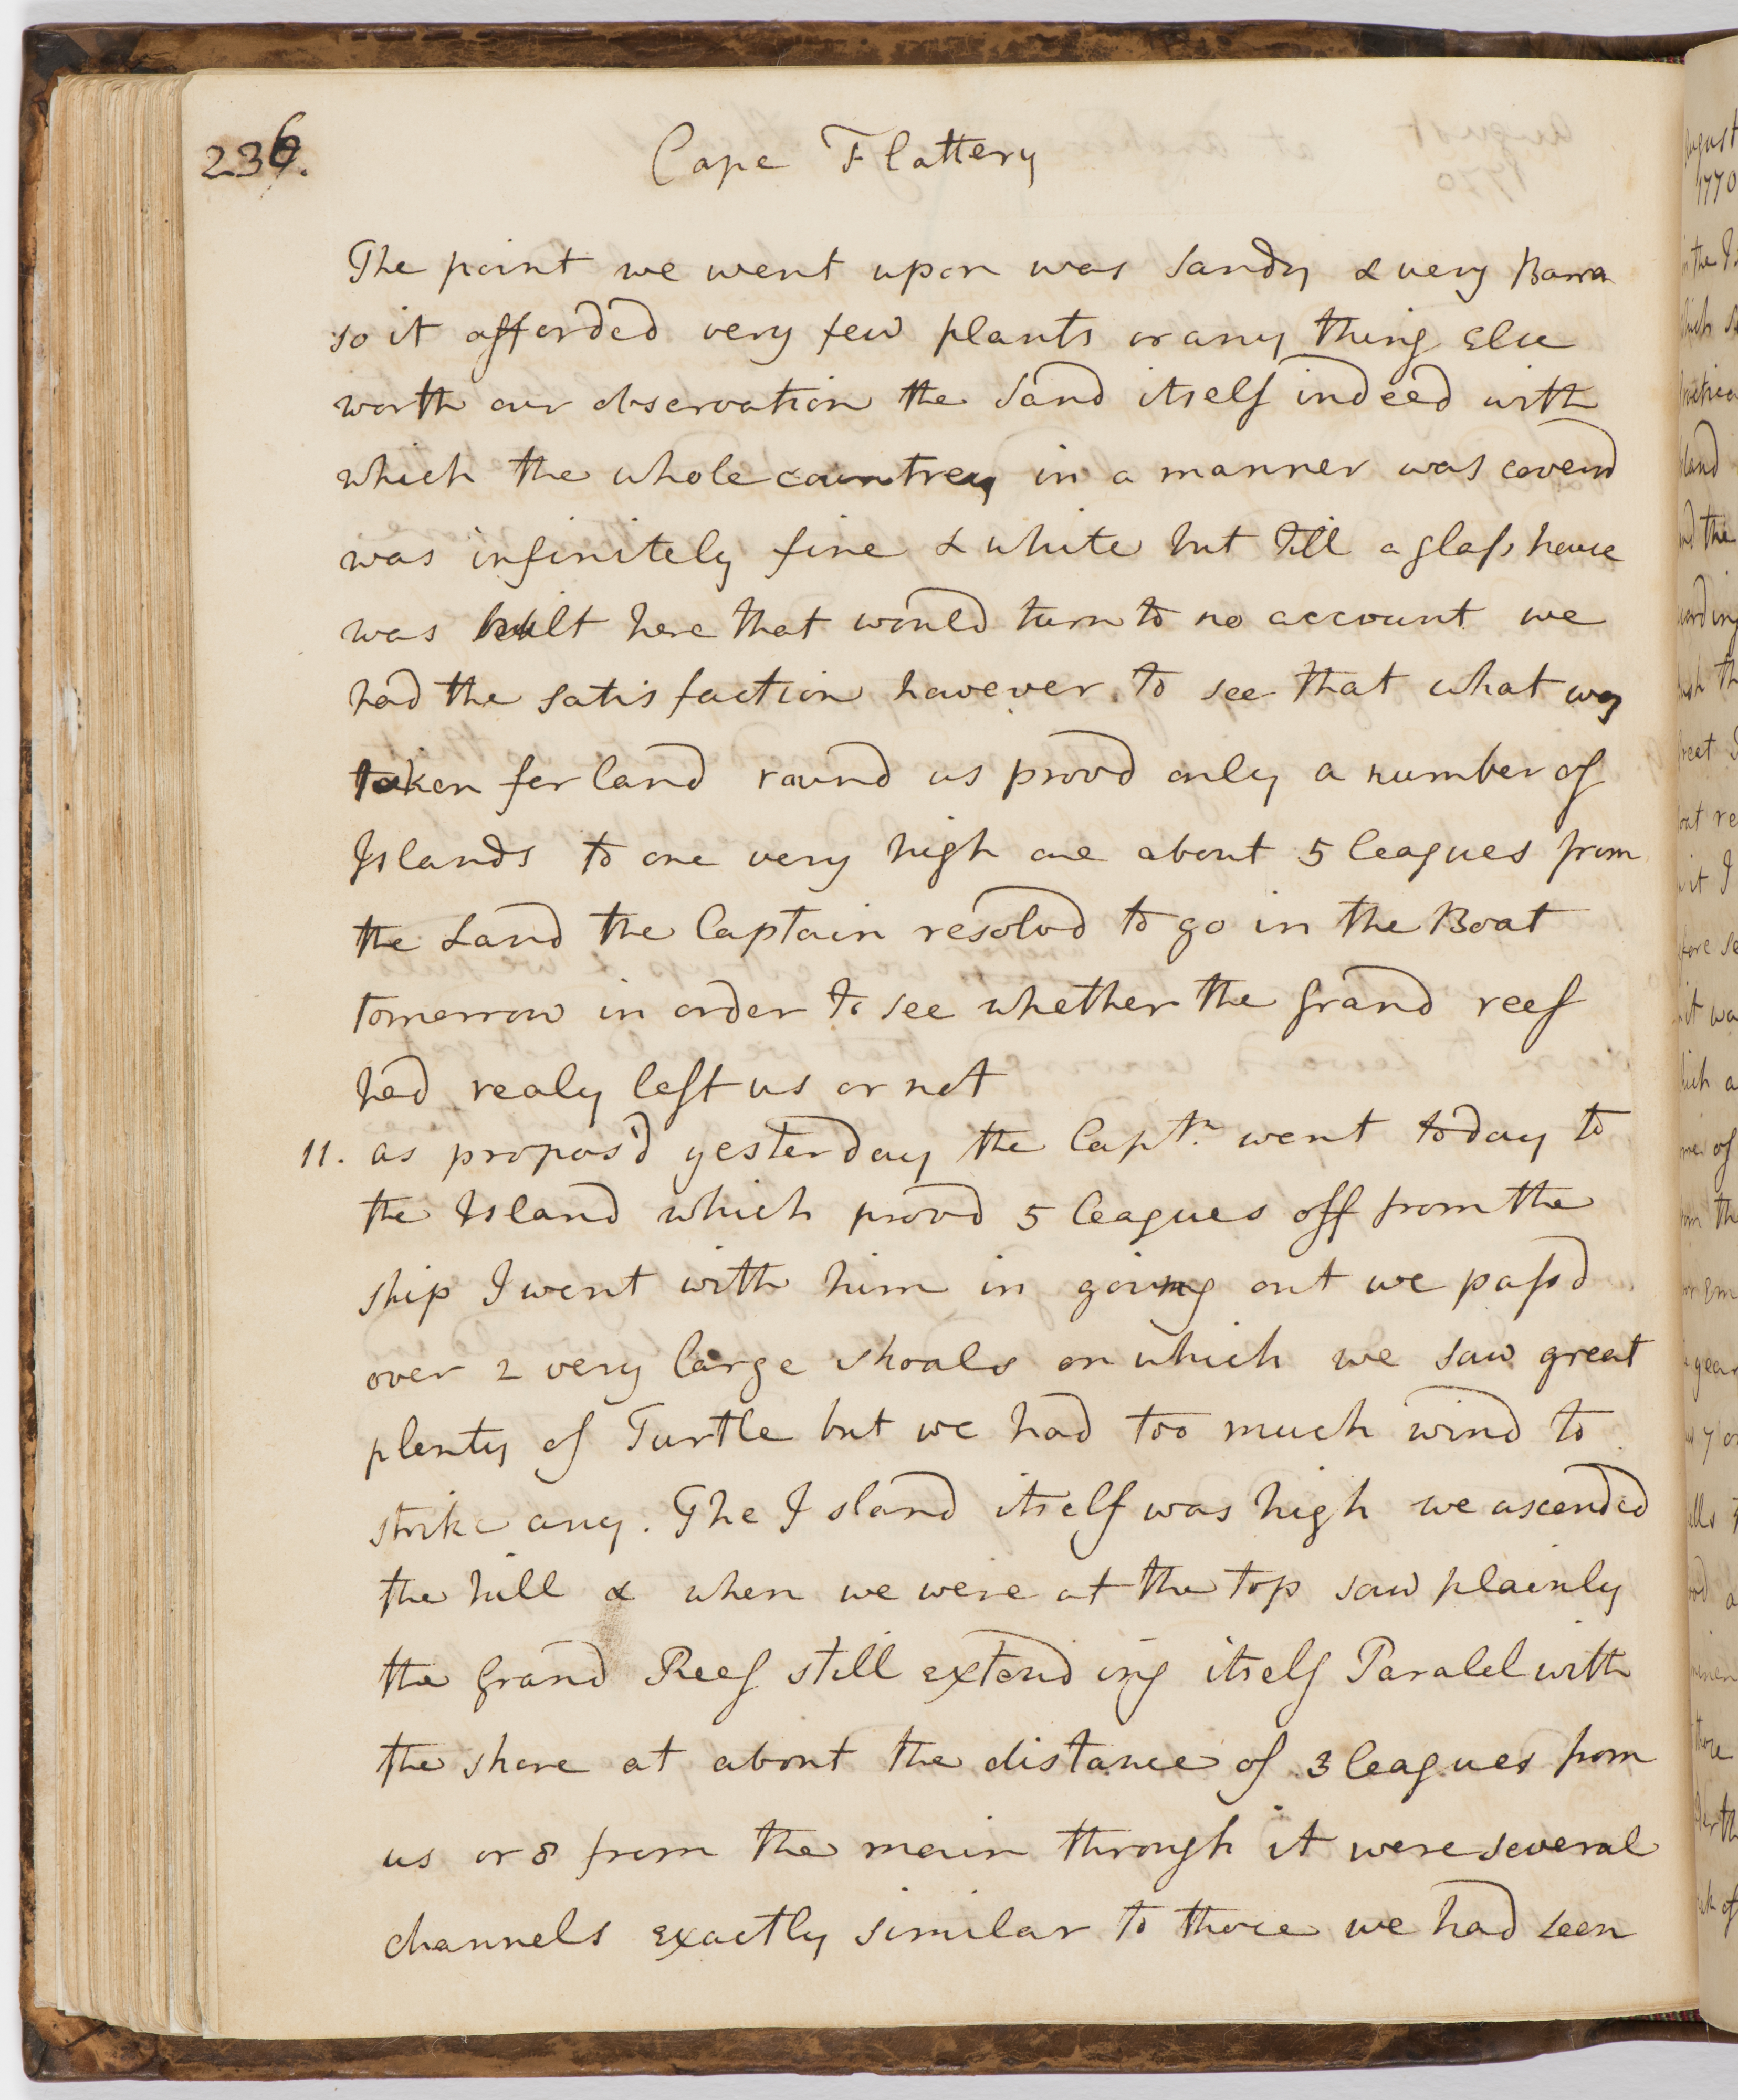 236.
Cape Flattery
The point we went upon was Sandy & very Barren
so it afforded very few plants or any thing Else
worth our observation the Sand itself indeed with
which the whole countrey in a manner was coverd
was infinitely fine & white but till a glass house
was built here that would turn to no account we
had the satisfaction however to see that what was
taken for land round us provd only a number of
Islands to one very high one about 5 leagues from
the Land the Captain resolvd to go in the Boat
tomorrow in order to see whether the Grand reef
had realy left us or not
11. as propos'd yesterday the Captn. went today to
the Island which provd 5 leagues off from the
ship I went with him in going out we passd
over 2 very large shoals on which we saw great
plenty of Turtle but we had too much wind to
strike any. The Island itself was high we ascended
the hill & when we were at the top saw plainly
the Grand Reef still extending itself Paralel with
the shore at about the distance of 3 leagues from
us or 8 from the main through it were several
channels exactly similar to those we had seen
August
1770